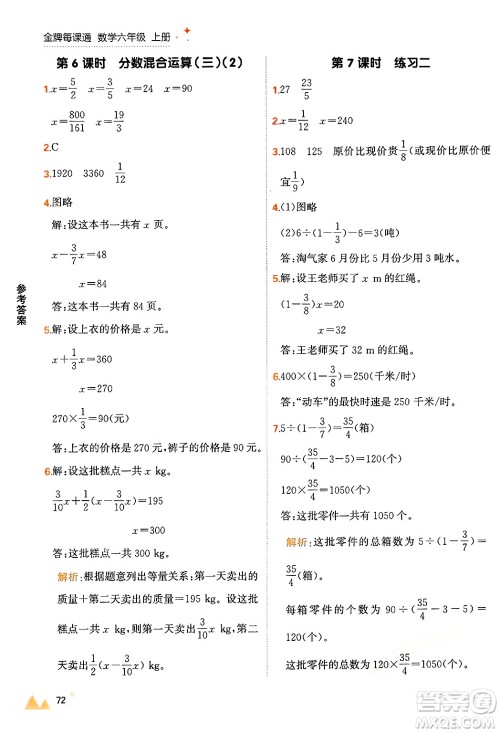 金牌每课通 数学六年级 上册
第 6 课时 分数混合运算(三)(2)
1. x=5/2 x=3/5 x=1/12 x=90
x=800/161 x=110/3
2. C
3. 1920 3360 1/12
4. 图略
解:设这本书一共有 x 页。
x-3/7x=48
x=84
答:这本书一共有 84 页。
5. 解:设上衣的价格是 x 元。
x+1/3x=360
x=270
270×1/3=90(元)
答:上衣的价格是 270 元,裤子的价格是 90 元。
6. 解:设这批糕点一共有 x kg。
3/10x+1/2(x-3/10x)=195
x=300
答:这批糕点一共有 300 kg。
解析:根据题意列出等量关系:第一天卖出的
质量+第二天卖出的质量=195 kg。设这批
糕点共有 x kg,则第一天卖出 3/10x kg,第二
天卖出 1/2(x-3/10x) kg。
参考答案
72
第 7 课时 练习二
1. 27 23/5
2. x=1/12 x=240
3. 108 125 原价比现价贵1/8(或现价比原价便
宜1/9)
4. (1)图略
(2)6÷(1-1/3)-6=3(吨)
答:淘气家 6 月份比 5 月份多用水 3 吨。
5. 解:设王老师买了 x m 的红绳。
(1-3/8)x=20
x=32
答:王老师买了 32 m 的红绳。
6. 400×(1-3/8)=250(千米/时)
答:“动车”的最快时速是 250 千米/时。
7. 5÷(1-3/7)=35/4(箱)
90÷(35/4-3-5)=120(个)
120×35/4=1050(个)
答:这批零件一共有 1050 个。
解析:这批零件的总箱数为 5÷(1-3/7)=
35/4(箱)
每箱零件的个数为 90÷(35/4-3-5)=
120(个)
这批零件的总个数为 120×35/4=1050(个)